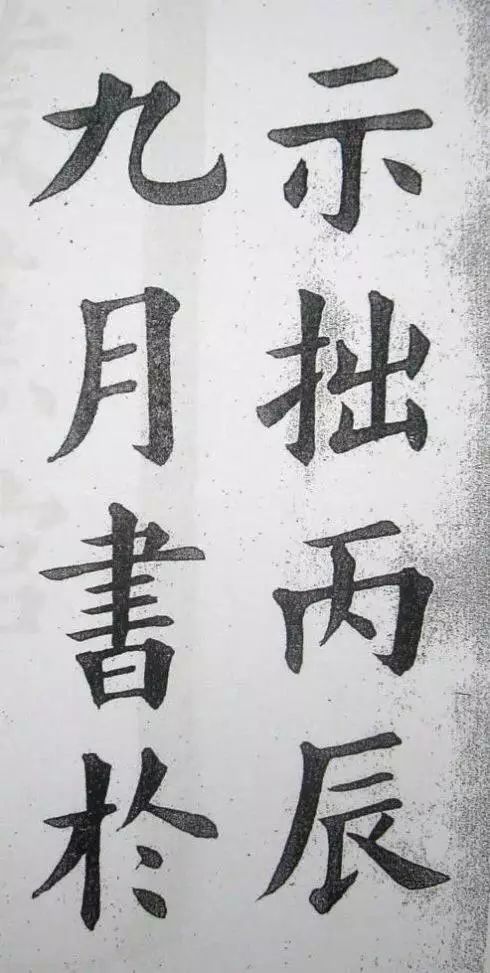 示拙丙辰
九月書於